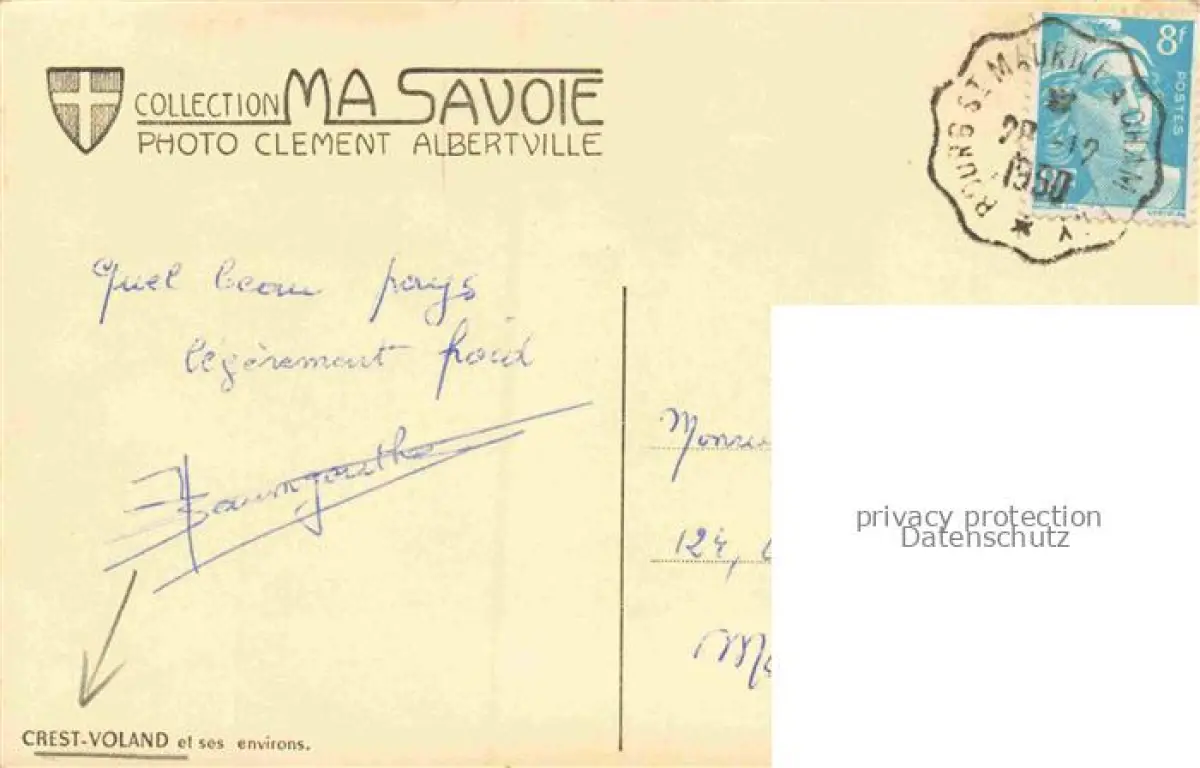 COLLECTION MA SAVOIE
PHOTO CLEMENT ALBERTVILLE
8f
POSTES
BOURG ST MAURICE A CHAM
28 -12
1950
Quel beau pays
légèrement froid
Monsie
124,
privacy protection
Datenschutz
CREST-VOLAND et ses environs.